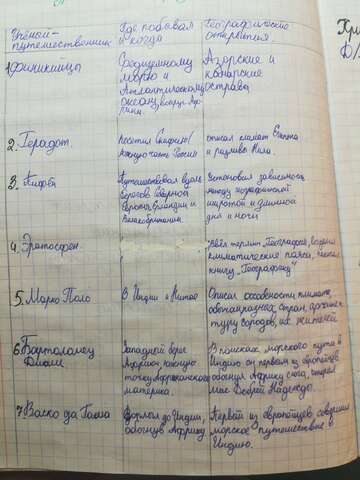 Учёный-
путешественник
Где побывал
и когда
Географические
открытия.
1. Финикийцы
Средиземному
морю и
Атлантическому
океану, вокруг Аф-
рики.
Азорские и
канарские
острова
2. Геродот.
посетил Скифию/
южную часть России
описал климат Египта
и разливы Нила.
3. Пифей
Путешествовал вдоль
берегов Северной
Европы, Ирландии и
Великобритании
Установил зависимость
между географической
широтой и длинной
дня и ночи
4. Эратосфен.
Ввёл термин "География",
климатические пояса,
книгу "География"
5. Марко Поло
В Индии и Китае
Описал особенности климата,
стран,
туру городов, их жителей
6. Бартоломеу
Диаш
Западный берег
Африки, южную
точку Африканского
материка.
В поисках морского пути в
Индию он первым из европейцев
обогнул Африку с юга, открыл
мыс Доброй Надежды.
7. Васко да Гама
до Индии,
обогнув Африку
Первый из европейцев совершил
морское путешествие в
Индию.